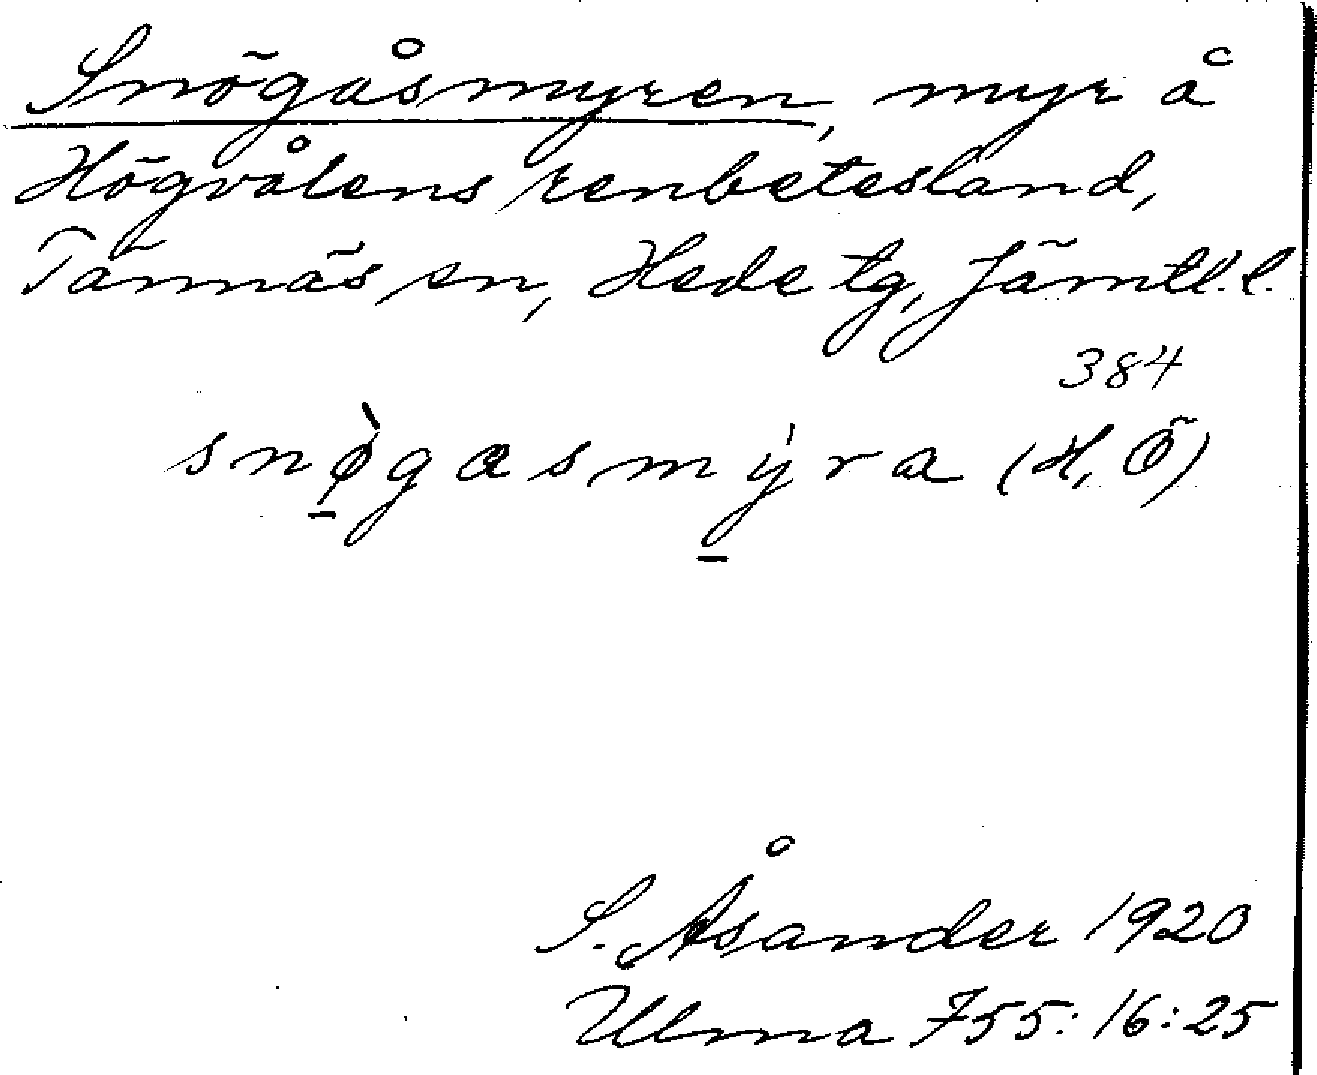 Snögåsmyren, myr å
Högvålens renbetesland,
Tännäs sn, Hede tg, Jämtl. l.
384
snø̠̀gasmy̠̍ra (H, Ö)
S. Åsander 1920
Ulma 755: 16: 25